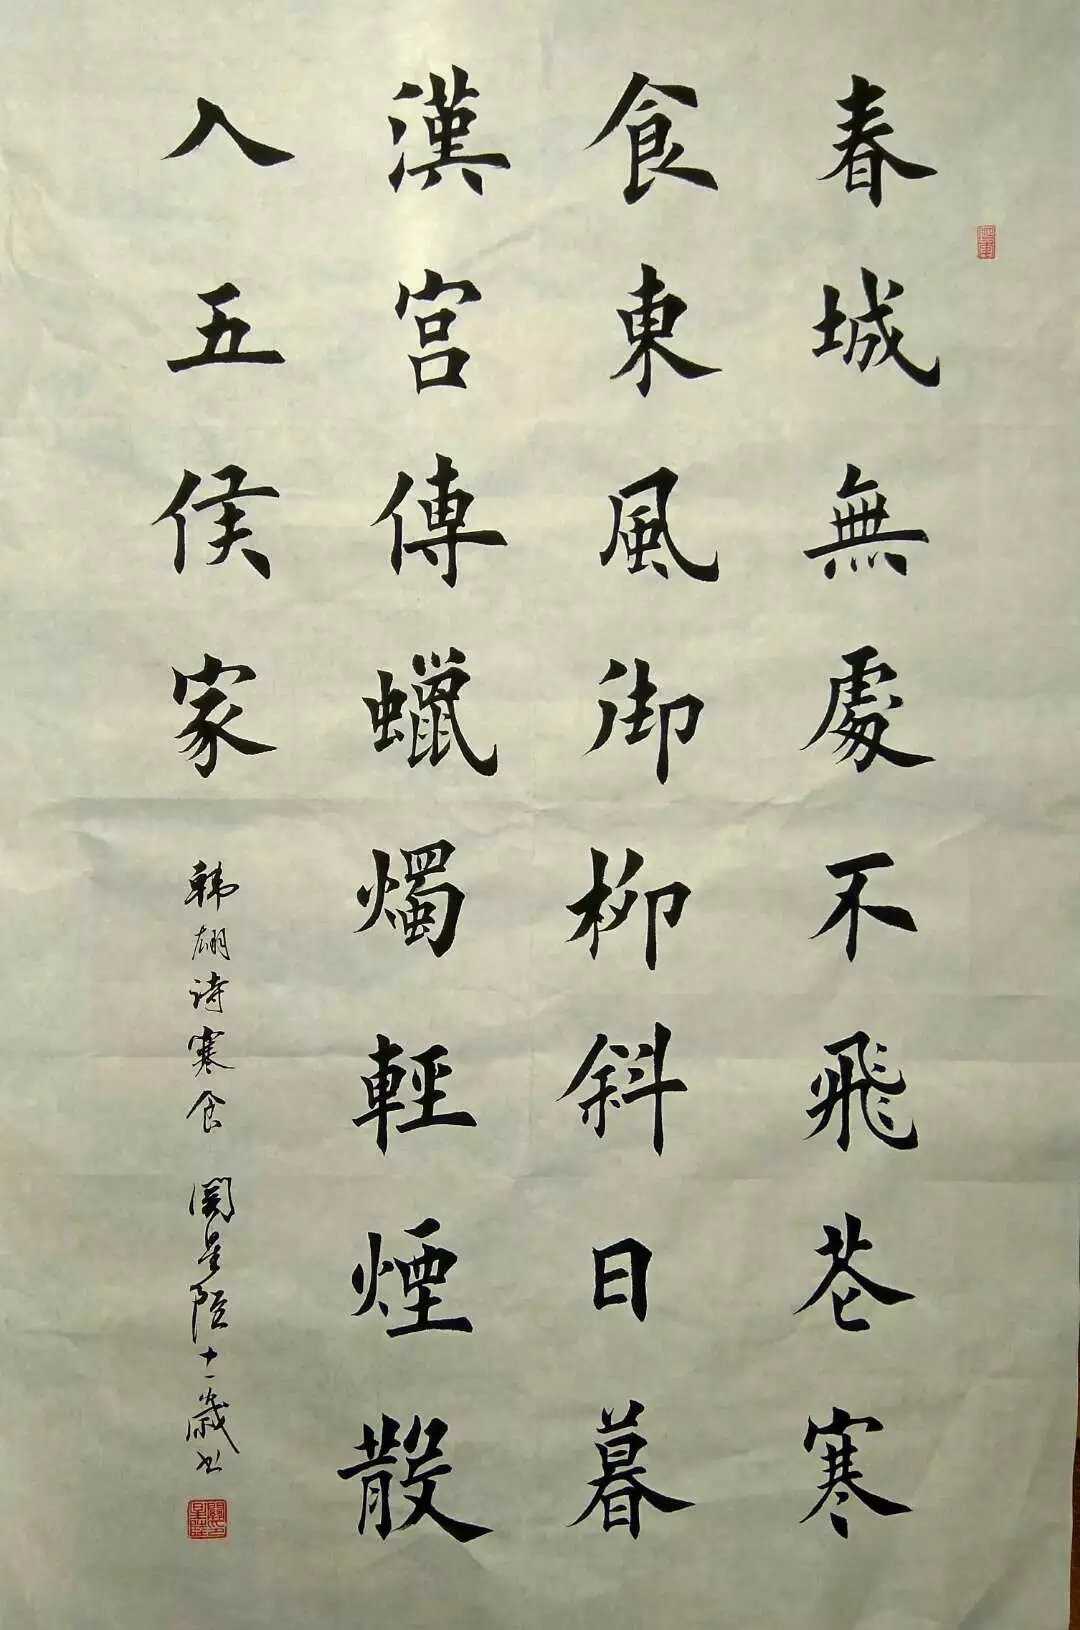 春城無處不飛花寒
食東風御柳斜日暮
漢宮傳蠟燭輕煙散
入五侯家
韩翃诗寒食 関星陪十一歲书